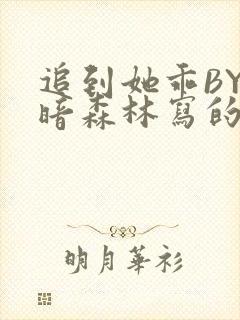 追到她乖BY
暗森林寫的
明月華衫